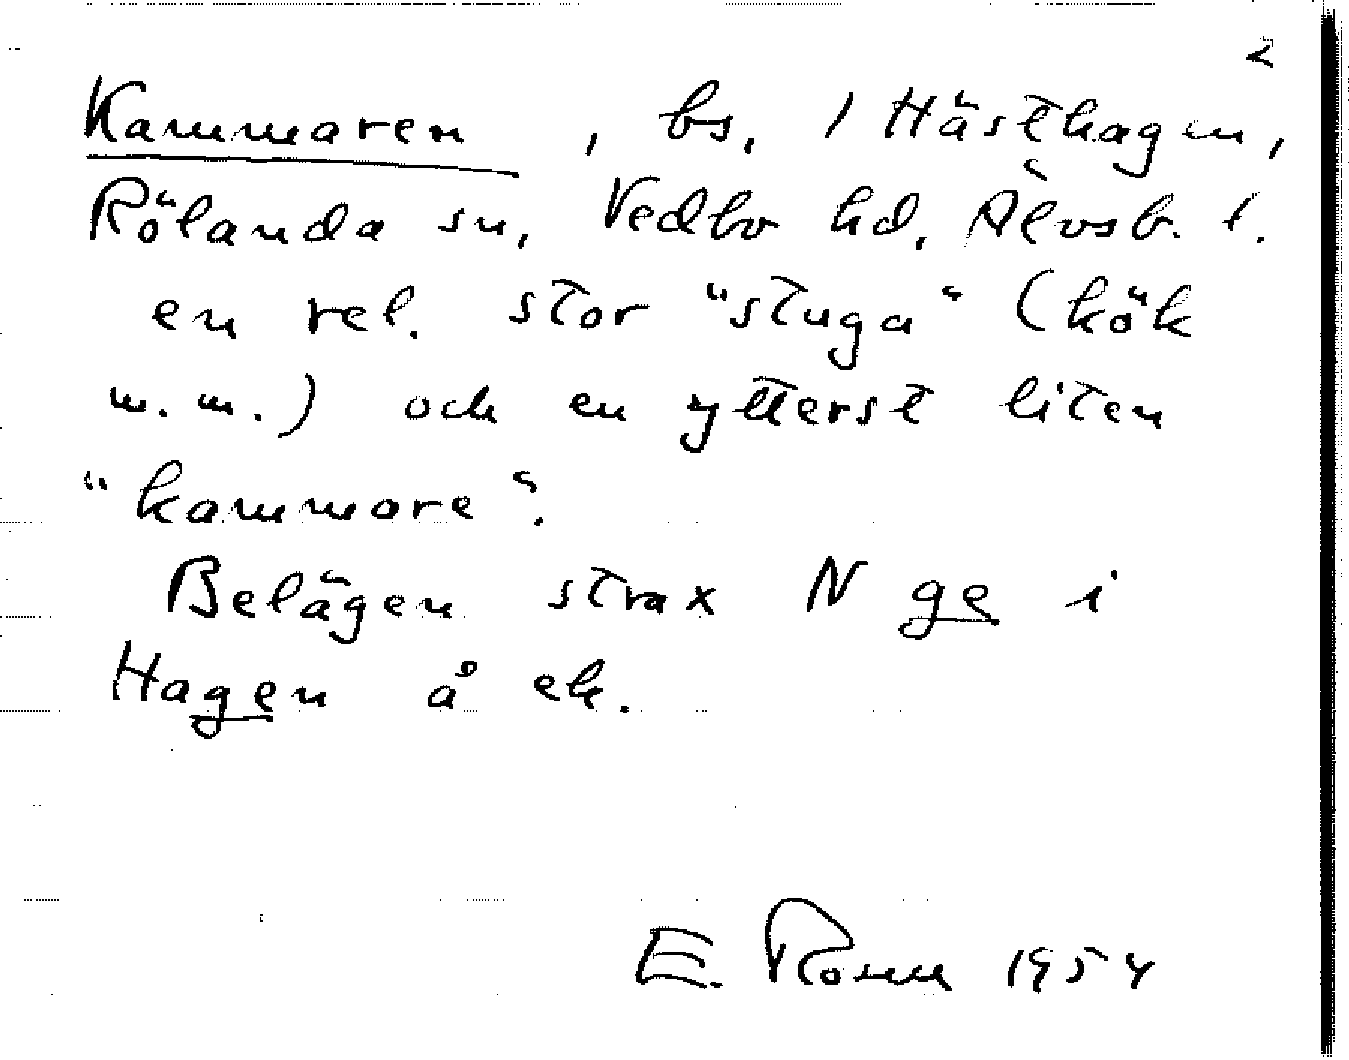 2
Kammaren, bs, 1 Hästhagen,
Rölanda sn, Vedbo hd, Älvsb. l.
en rel. stor "stuga" (kök
m. m.) och en ytterst liten
"kammare".
Belägen strax N ge i
Hagen å ek.
E. 1954